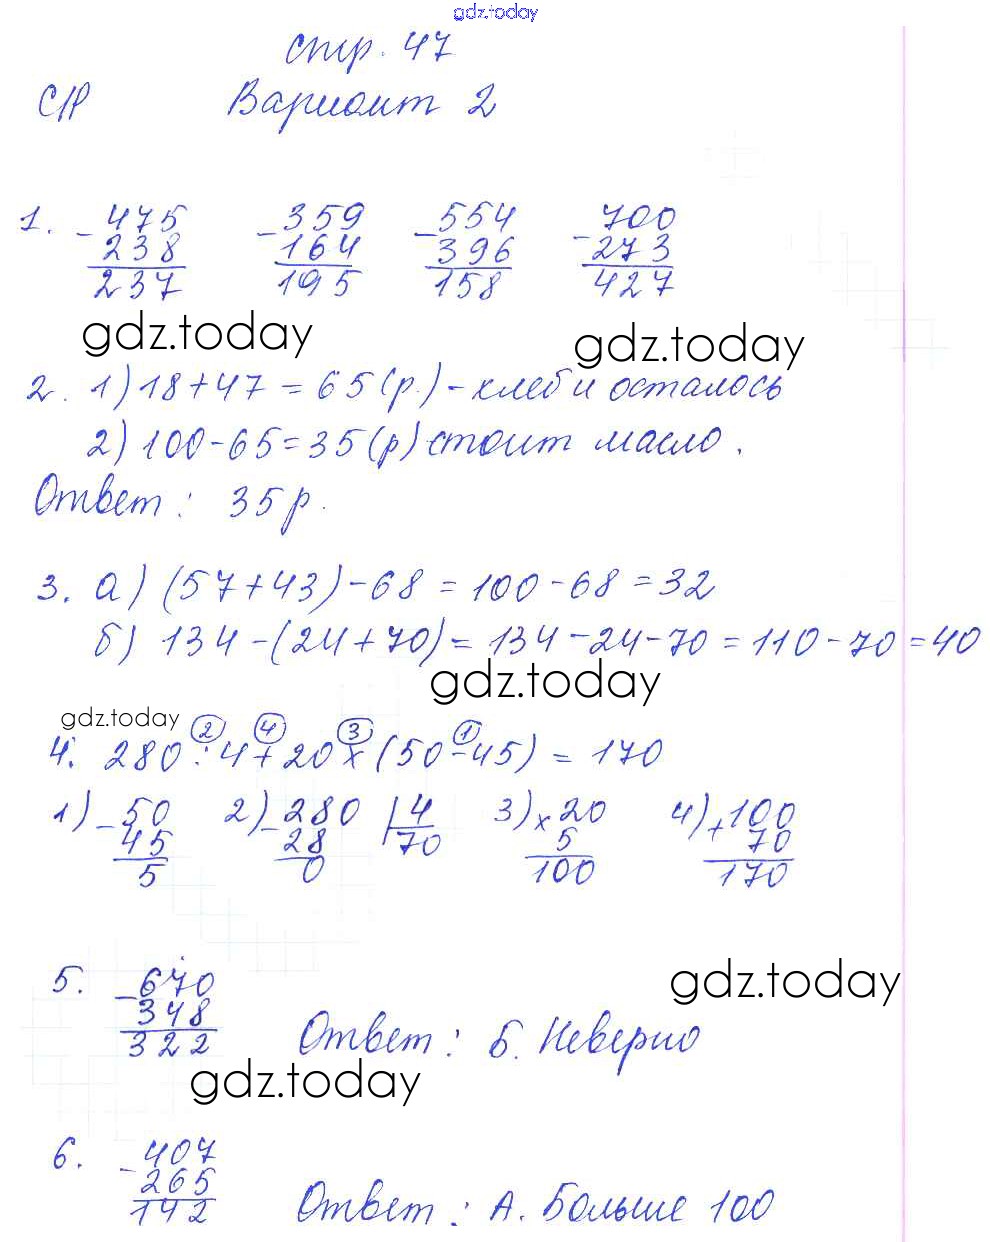 gdz.today
стр. 47
С/Р Вариант 2
1. - 475 - 359 - 554 - 700
238 164 396 273
237 195 158 427
gdz.today gdz.today
2. 1) 18 + 47 = 65 (р.) - хлеб и осталось
2) 100 - 65 = 35 (р) стоит масло.
Ответ: 35 р.
3. а) (57 + 43) - 68 = 100 - 68 = 32
б) 134 - (24 + 70) = 134 - 24 - 70 = 110 - 70 = 40
gdz.today
gdz.today 2 4 3 1
4. 280 : 4 + 20 × (50 - 45) = 170
1) - 50 2) - 280 | 4 3) × 20 4) + 100
45 28 70 5 70
5 0 100 170
5. - 670 gdz.today
348
322 Ответ: Б. Неверно
gdz.today
6. - 407
265
142 Ответ: А. Больше 100